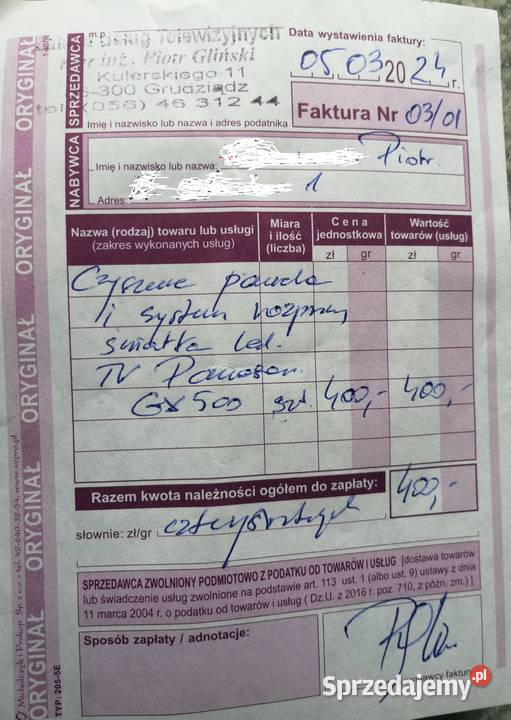 m.p.
Usług Telewizyjnych
mgr inż. Piotr Gliński
Kulerskiego 11
86-300 Grudziądz
tel. (056) 46 312 44
Imię i nazwisko lub nazwa i adres podatnika
SPRZEDAWCA
Data wystawienia faktury:
05.03 2024 r.
Faktura Nr 03/01
NABYWCA
Imię i nazwisko lub nazwa: Piotr.
Adres: 1
Nazwa (rodzaj) towaru lub usługi
(zakres wykonanych usług)
Miara i ilość (liczba)
Cena jednostkowa
Wartość towarów (usług)
zł gr zł gr
i system
TV
GX500 szt. 400,- 400,-
Razem kwota należności ogółem do zapłaty: 400,-
słownie: zł/gr
SPRZEDAWCA ZWOLNIONY PODMIOTOWO Z PODATKU OD TOWARÓW I USŁUG [dostawa towarów
lub świadczenie usług zwolnione na podstawie art. 113 ust. 1 (albo ust. 9) ustawy z dnia
11 marca 2004 r. o podatku od towarów i usług ( Dz.U. z 2016 r. poz. 710, z późn. zm.) ]
Sposób zapłaty / adnotacje:
faktury
ORYGINAŁ ORYGINAŁ ORYGINAŁ ORYGINAŁ ORYGINAŁ
Michalczyk i Prokop Sp. z o.o. - tel. 42-640-32-54, www.mipro.pl
TYP: 205-5E
Sprzedajemy.pl